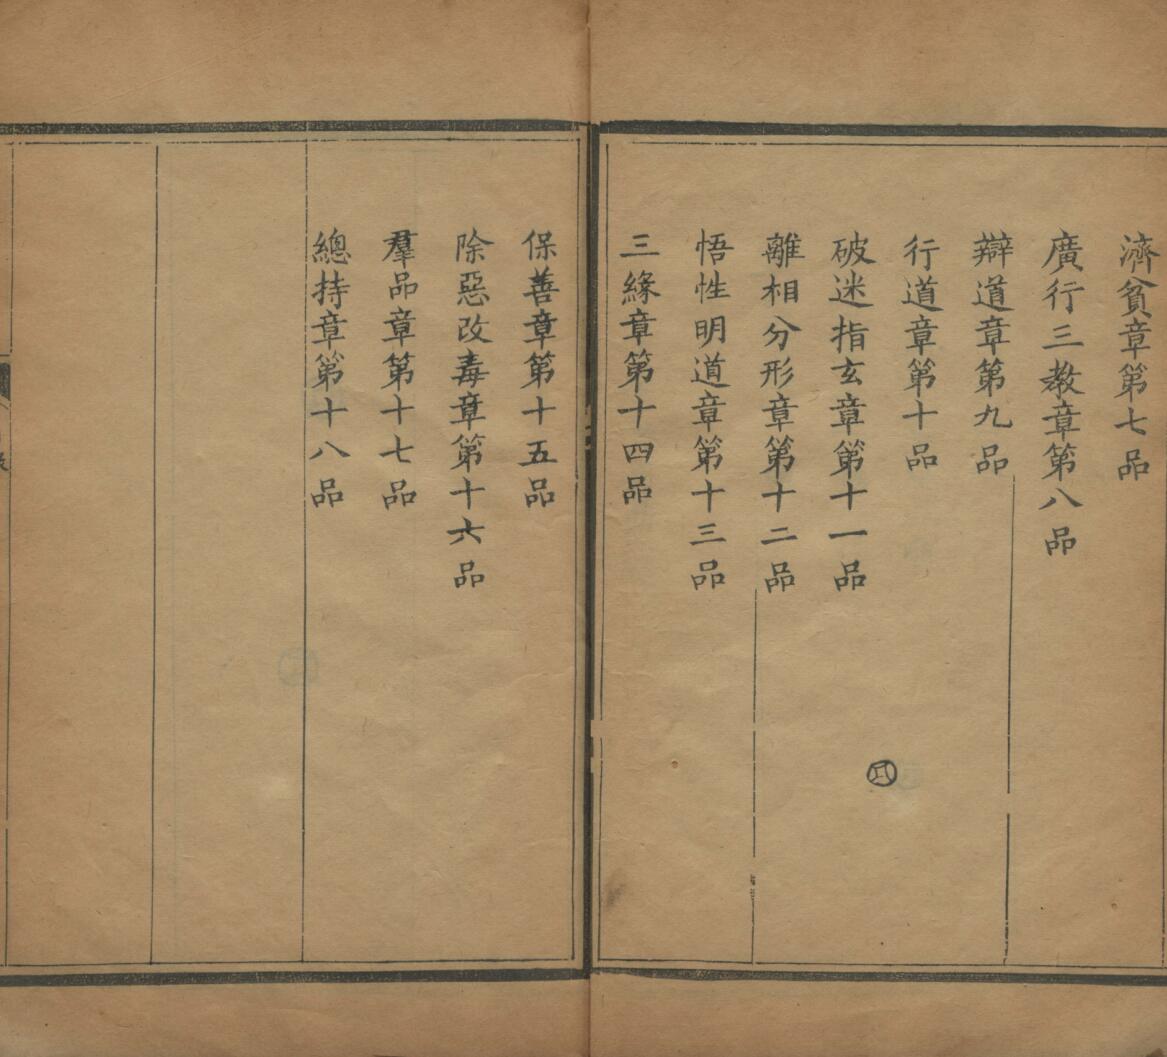 濟貧章第七品
廣行三教章第八品
辯道章第九品
行道章第十品
破迷指玄章第十一品
離相分形章第十二品
悟性明道章第十三品
三緣章第十四品
保善章第十五品
除惡改毒章第十六品
羣品章第十七品
總持章第十八品